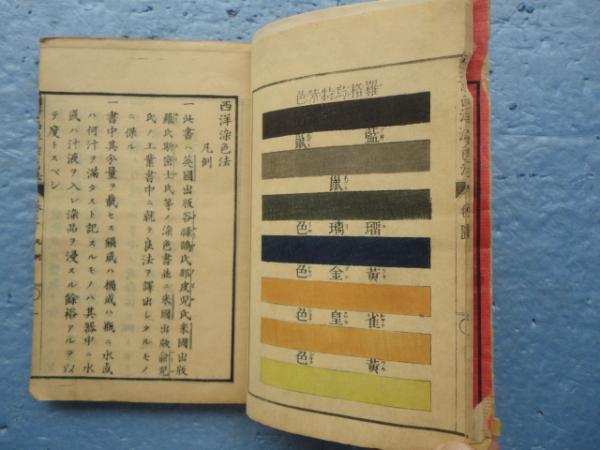 羅格烏特紫色
藍鼠
鼠
瑠璃色
黄金色
雀皇色
黄色
西洋染色法
凡例
一此書ハ英國出版 氏 氏米國出版
羅氏斯密士氏等ノ染色書並ニ米國出版
氏ノ工業書中ニ就テ良法ヲ譯出シタルモノ
ニ係ル
一書中其分量ヲ載セス鍋或ハ桶或ハ瓶ニ水或
ハ何汁ヲ満タスト記スルモノハ其器中ニ水
或ハ汁液ヲ入レ染品ヲ浸スル餘裕アルヲ以
テ度トスベシ